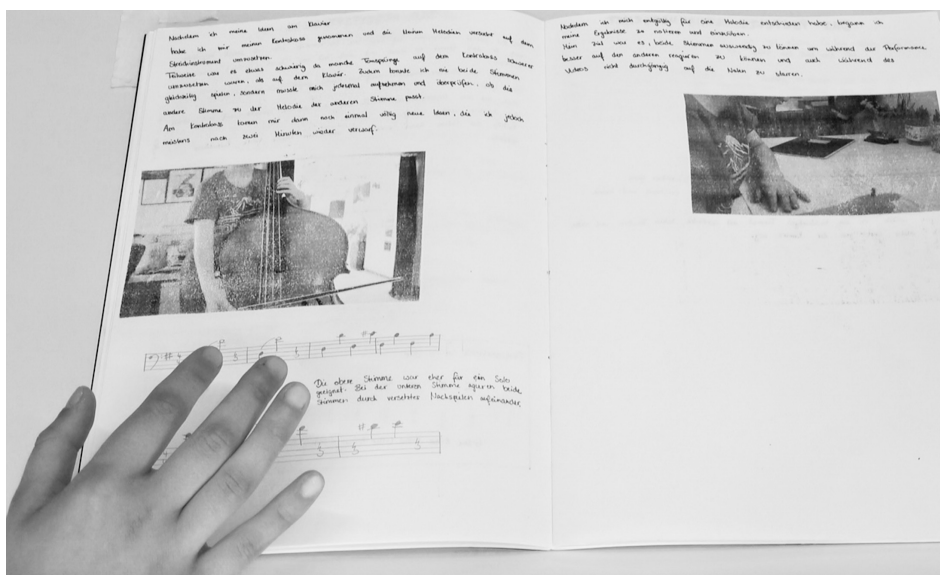 Nachdem ich meine Ideen am Klavier
habe ich mir meinen Kontrabass genommen und die kleinen Melodien versucht auf dem
Streichinstrument umzusetzen.
Teilweise war es etwas schwierig da manche Tonsprünge auf dem Kontrabass schwerer
umzusetzen waren, als auf dem Klavier. Zudem konnte ich nie beide Stimmen
gleichzeitig spielen, sondern musste mich jedesmal aufnehmen und überprüfen, ob die
andere Stimme zu der Melodie der anderen Stimme passt.
Am Kontrabass kamen mir dann noch einmal völlig neue Ideen, die ich jedoch
meistens nach zwei Minuten wieder verwarf.
Die obere Stimme war eher für ein Solo
geeignet. Bei der unteren Stimme agieren beide
Stimmen durch versetztes Nachspielen aufeinander.
Nachdem ich mich entgültig für eine Melodie entschieden habe, begann ich
meine Ergebnisse zu notieren und einzuüben.
Mein Ziel war es, beide Stimmen auswendig zu können um während der Performance
besser auf den anderen reagieren zu können und auch während des
Videos nicht durchgängig auf die Noten zu starren.